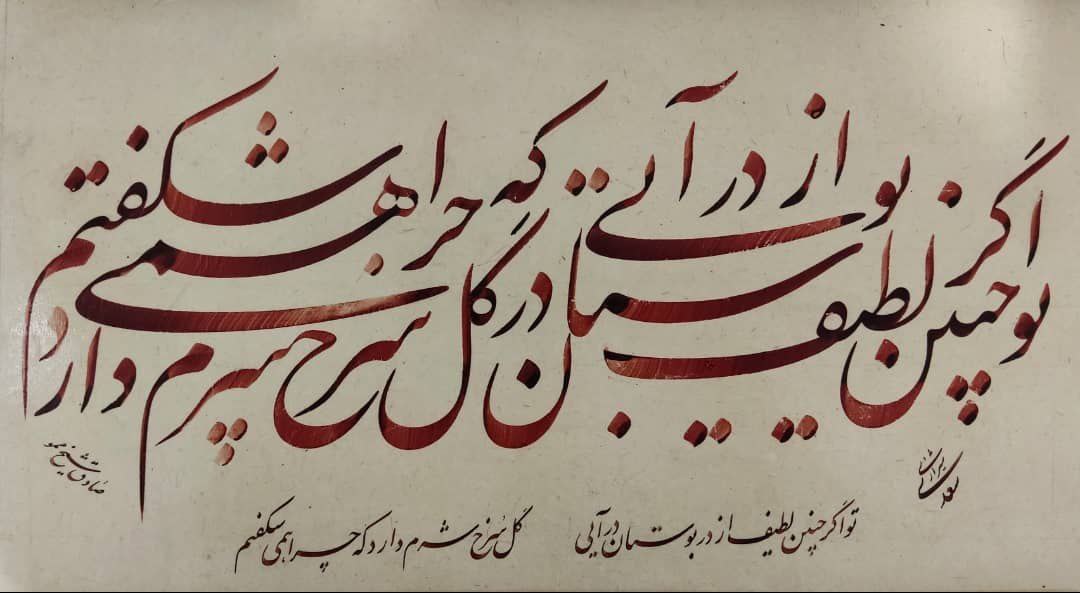 تو اگر چنین لطیف از در بوستان درآیی گل سرخ شرم دارد که چرا همی شکفتم
سعدی شیرازی
صادق
تو اگر چنین لطیف از در بوستان درآیی گل سرخ شرم دارد که چرا همی شکفتم